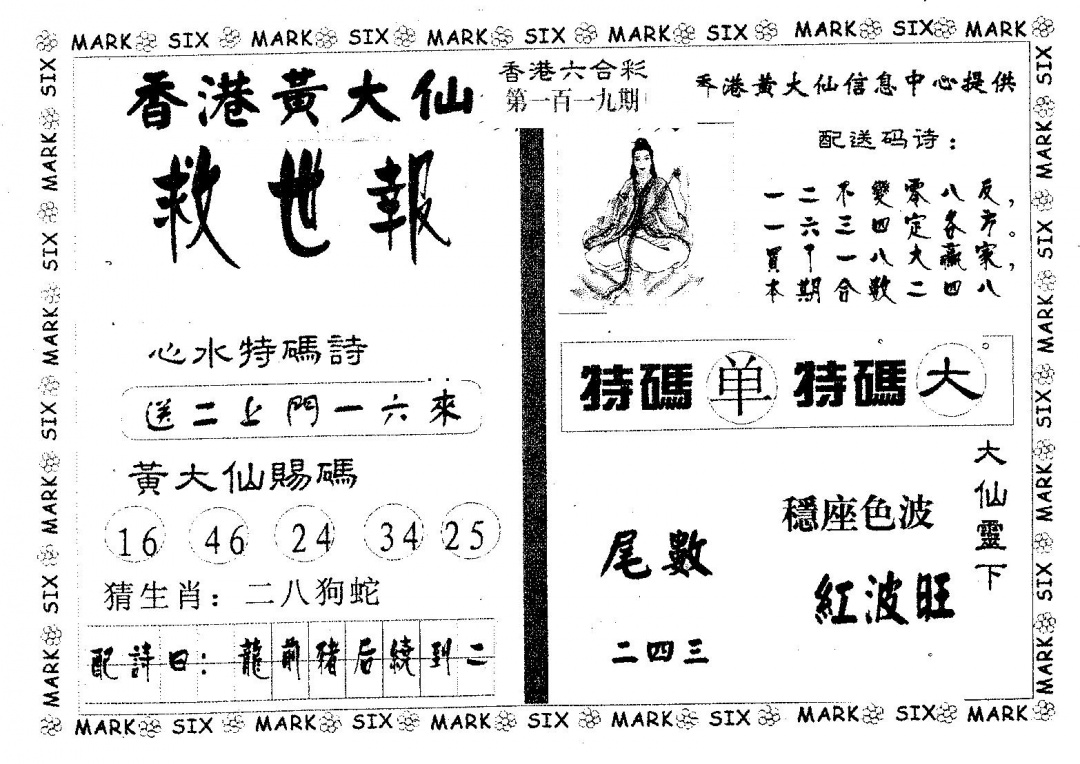 MARK SIX MARK SIX MARK SIX MARK SIX MARK SIX MARK
香港黃大仙
救世報
香港六合彩
第一百一九期
香港黃大仙信息中心提供
配送码诗：
一二不變零八反，
一六三四定各方。
買中一八大贏家，
本期合數二四八
心水特碼詩
送二上門一六來
特碼 单 特碼 大
黃大仙賜碼
16 46 24 34 25
猜生肖：二八狗蛇
配詩曰：龍前豬后繞到二
尾數
二四三
穩座色波
紅波旺
大仙靈下
MARK SIX MARK SIX MARK SIX MARK SIX
MARK SIX MARK SIX MARK SIX MARK SIX
MARK SIX MARK SIX MARK SIX MARK SIX MARK SIX MARK